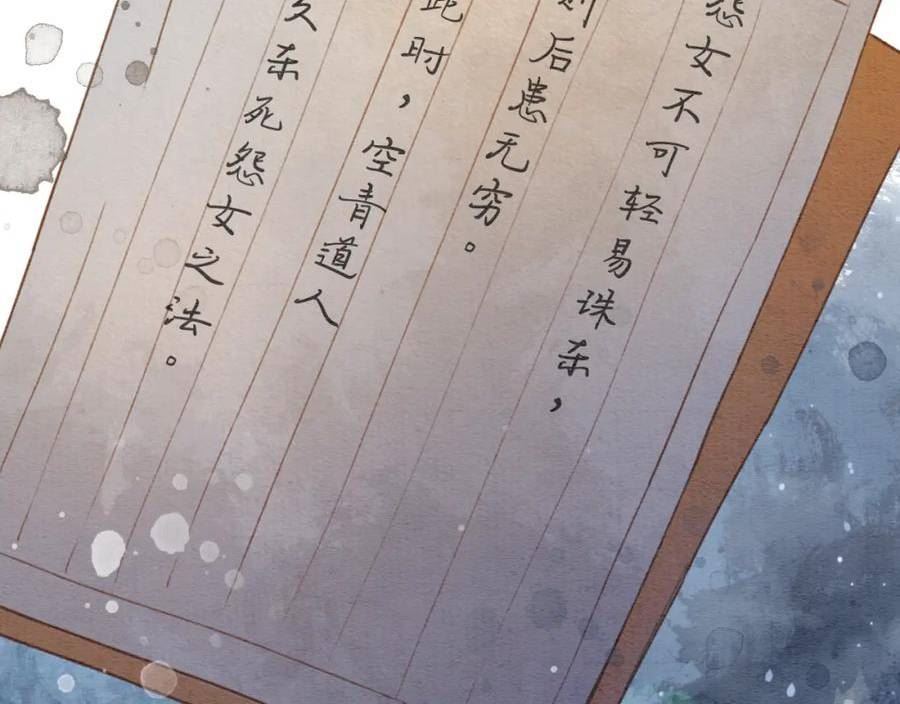 怨女不可轻易珠杀，
则后患无穷。
此时，空青道人
久杀死怨女之法。